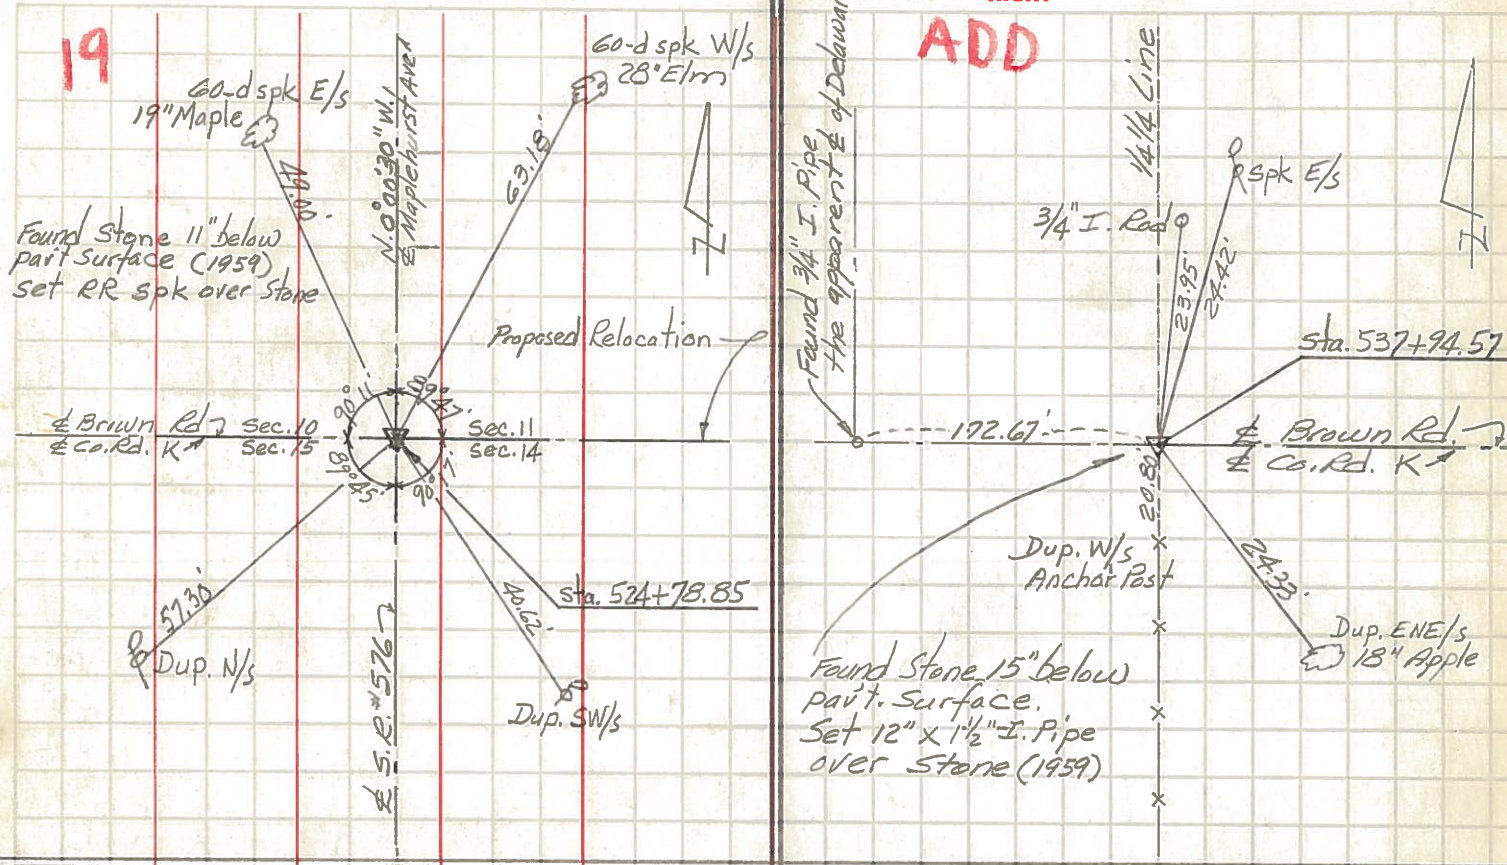 19
60-d spk E/s
19" Maple
49.00'
N.0°00'30"W.
℄ Maplehurst Ave
60-d spk W/s
28" Elm
63.18'
Found Stone 11" below
pav't Surface (1959)
set RR spk over Stone
Proposed Relocation
90° 11'
89° 47'
℄ Brown Rd
℄ Co. Rd. K
Sec. 10
Sec. 15
Sec. 11
Sec. 14
89° 45'
90°
57.30'
Dup. N/s
℄ S.R. #576
40.62'
Dup. SW/s
Sta. 524+78.85
ADD
Found 3/4" I. Pipe
the apparent ℄ of Delawar
1/4 1/4 Line
spk E/s
3/4" I. Rod
23.95'
24.42'
Sta. 537+94.57
172.67'
℄ Brown Rd.
℄ Co. Rd. K
20.80'
Dup. W/s
Anchor Post
24.33'
Dup. ENE/s
18" Apple
Found Stone 15" below
pav't. Surface.
Set 12" x 1-1/2" I. Pipe
over Stone (1959)